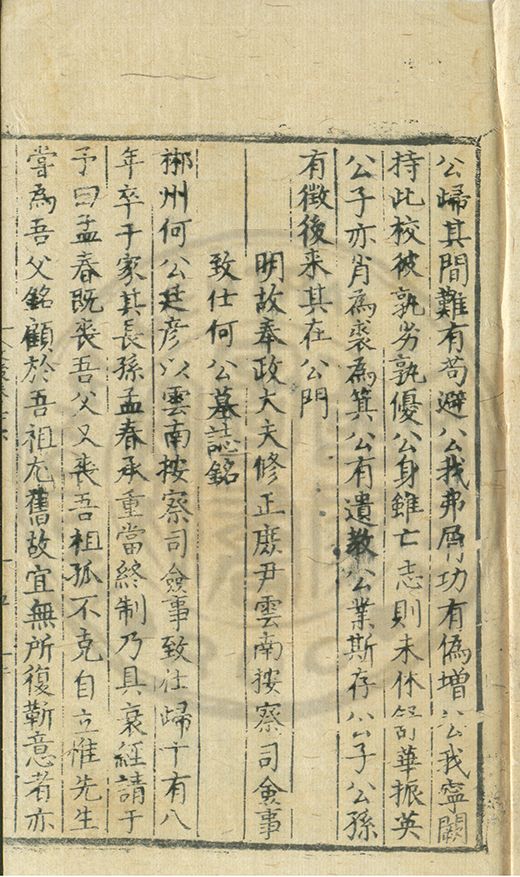 公歸其間難有苟避公我弗屑功有偽增公我寧闕
持此校彼孰劣孰優公身雖亡志則未休 華振英
公子亦肖為裘為箕公有遺教公業斯存公子公孫
有徵後来其在公門
明故奉政大夫修正庶尹雲南按察司僉事
致仕何公墓誌銘
郴州何公廷彦以雲南按察司僉事致仕歸十有八
年卒于家其長孫孟春承重當終制乃具衰絰請于
予曰孟春既喪吾父又喪吾祖孤不克自立惟先生
嘗為吾父銘顧於吾祖尤舊故宜無所復靳意者亦